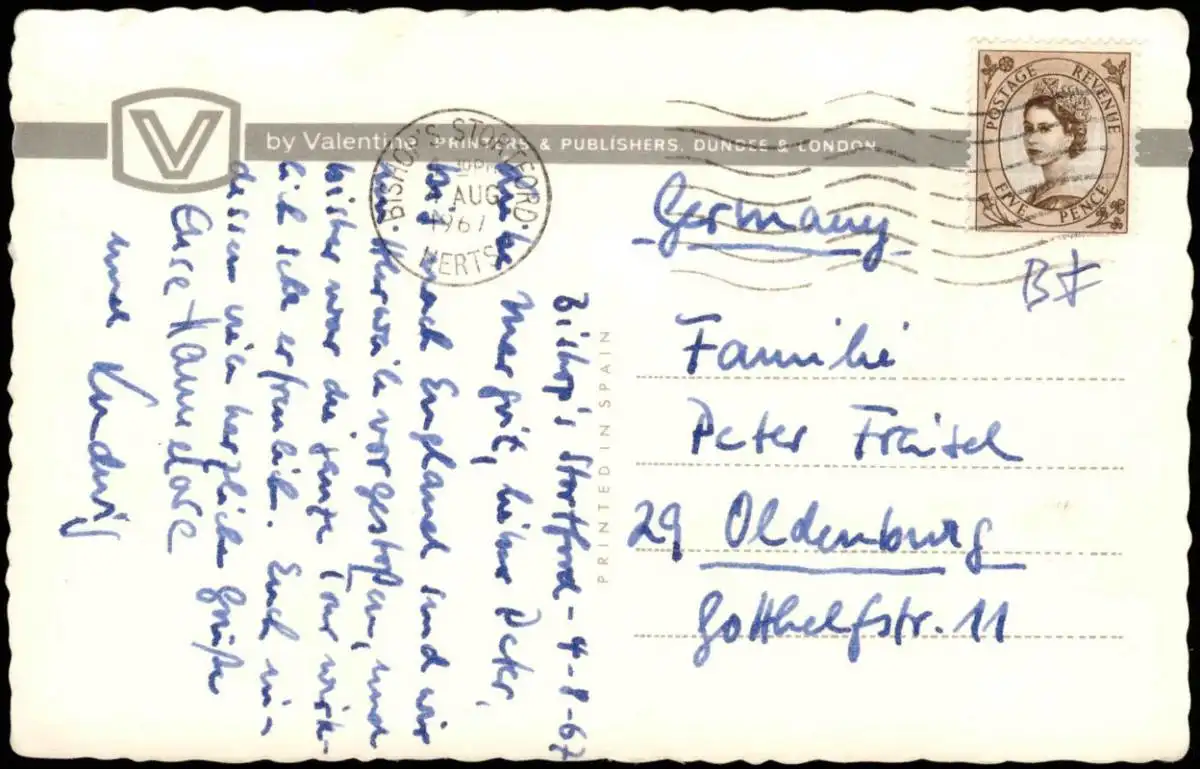 V
by Valentine PRINTERS & PUBLISHERS, DUNDEE & LONDON
BISHOP'S STORTFORD
PM
AUG
1967
HERTS
POSTAGE REVENUE
FIVE PENCE
Bishop's Stortford - 4-8-67
Liebe
Margrit, lieber Peter,
bis nach England sind wir
mittlerweile vorgestoßen, und
bisher war die ganze Tour wirk-
lich sehr erfreulich. Euch in-
dessen viele herzliche Grüße
Eure Hannelore
und Ludwig
PRINTED IN SPAIN
- Germany -
Familie
Peter
29 Oldenburg
Gotthelfstr. 11